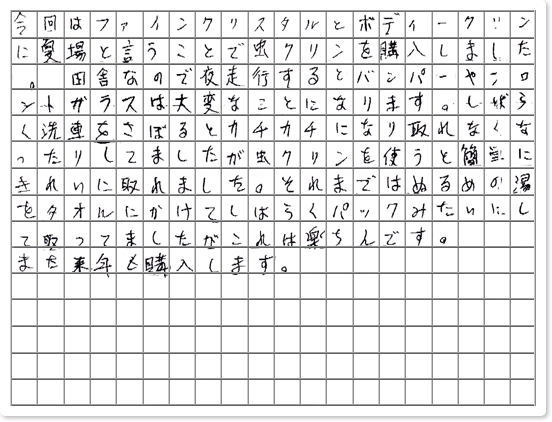 今回はファインクリスタルとボディークリン
に夏場と言うことで虫クリンを購入しました
。 田舎なので夜走行するとバンパーやフロ
ントガラスは大変なことになります。しばら
く洗車をさぼるとカチカチになり取れなくな
ったりしてましたが虫クリンを使うと簡単に
きれいに取れました。それまではぬるめの湯
をタオルにかけてしばらくパックみたいにし
て取ってましたがこれは楽ちんです。
また来年も購入します。